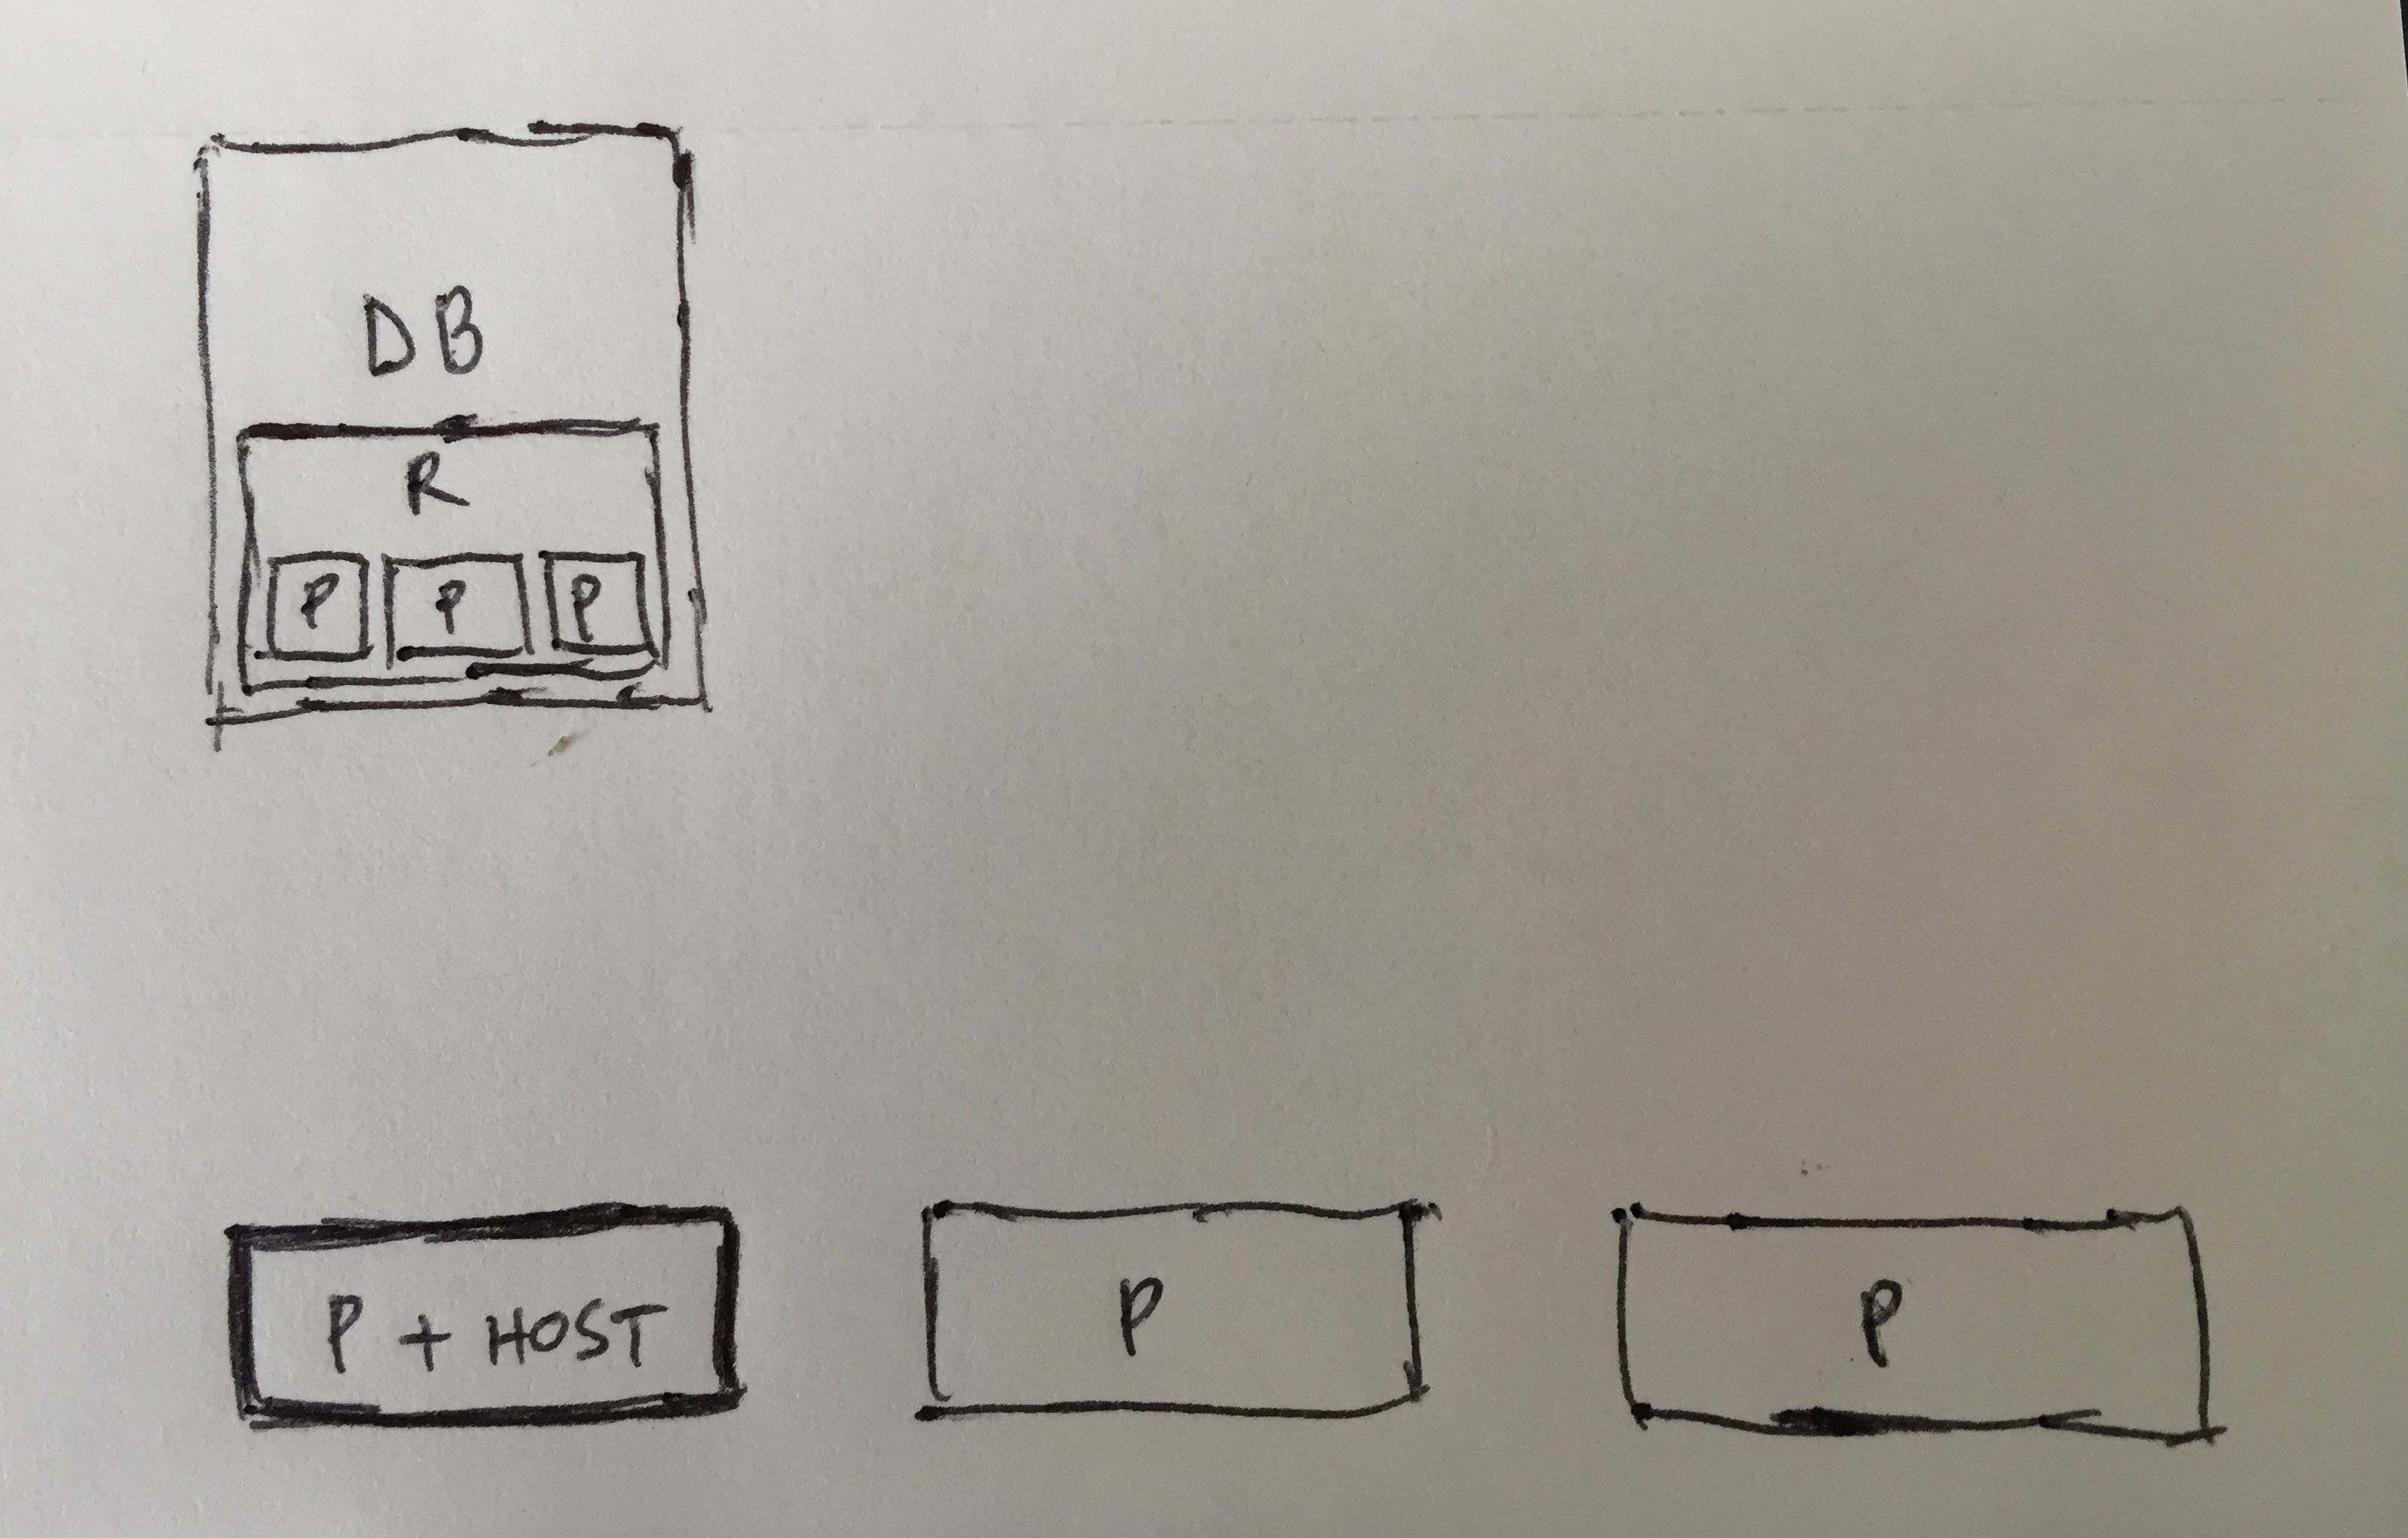 DB
R
P P P
P + HOST P P